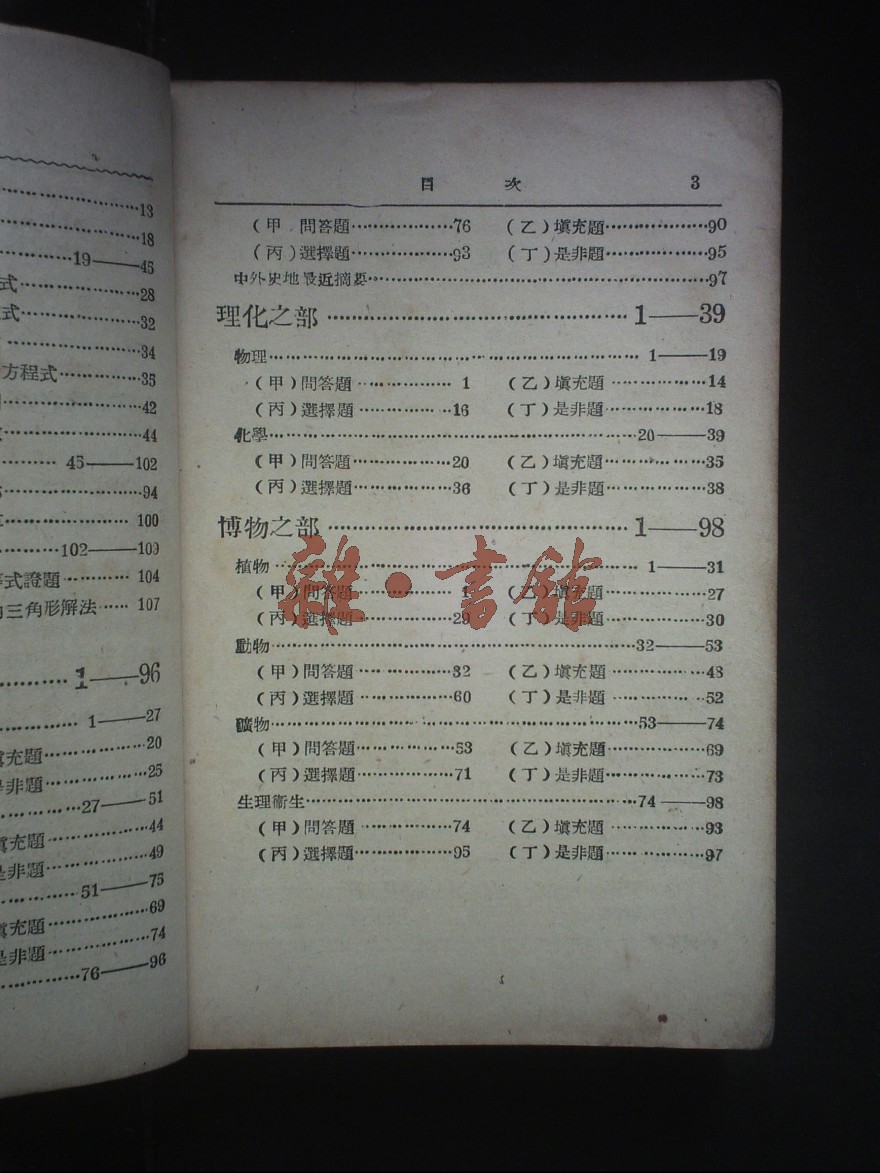 13
18
19——45
式……28
式……32
34
方程式……35
42
44
45——102
94
100
102——109
等式證題……104
三角形解法……107
1——96
1——27
填充題……20
是非題……25
27——51
填充題……44
是非題……49
51——75
填充題……69
是非題……74
76——96
目 次 3
（甲 問答題……76 （乙）填充題……90
（丙）選擇題……93 （丁）是非題……95
中外史地最近摘要……97
理化之部……1——39
物理……1——19
（甲）問答題……1 （乙）填充題……14
（丙）選擇題……16 （丁）是非題……18
化學……20——39
（甲）問答題……20 （乙）填充題……35
（丙）選擇題……36 （丁）是非題……38
博物之部……1——98
植物……1——31
（甲）問答題……1 （乙）填充題……27
（丙）選擇題……29 （丁）是非題……30
動物……32——53
（甲）問答題……32 （乙）填充題……48
（丙）選擇題……60 （丁）是非題……52
礦物……53——74
（甲）問答題……53 （乙）填充題……69
（丙）選擇題……71 （丁）是非題……73
生理衛生……74——98
（甲）問答題……74 （乙）填充題……93
（丙）選擇題……95 （丁）是非題……97
雜·書館